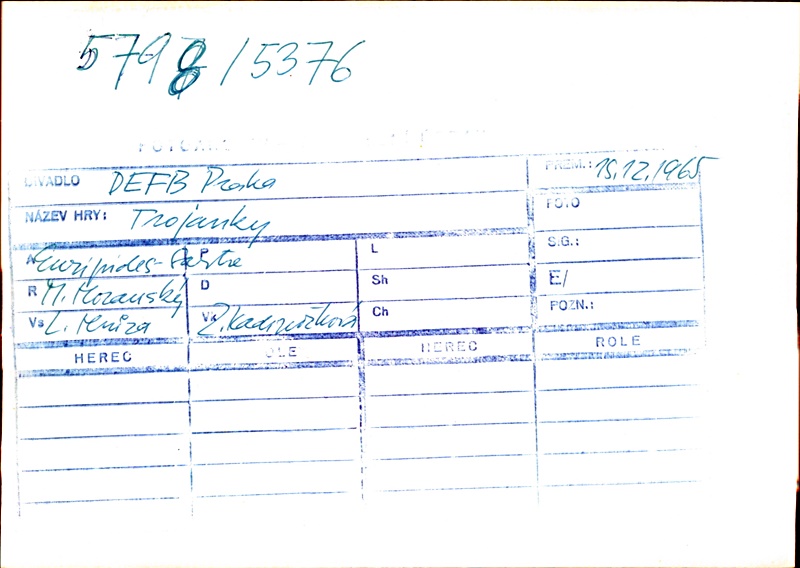 5798/5376
DIVADLO DEFB Praha PREM.: 15.12.1965
NÁZEV HRY: Trojanky FOTO
A Euripides-Sartre P L S.G.:
R M. Moravský D Sh E/
Vs L. Hruza Vk Z. Kadrnožková Ch POZN.:
HEREC ROLE HEREC ROLE